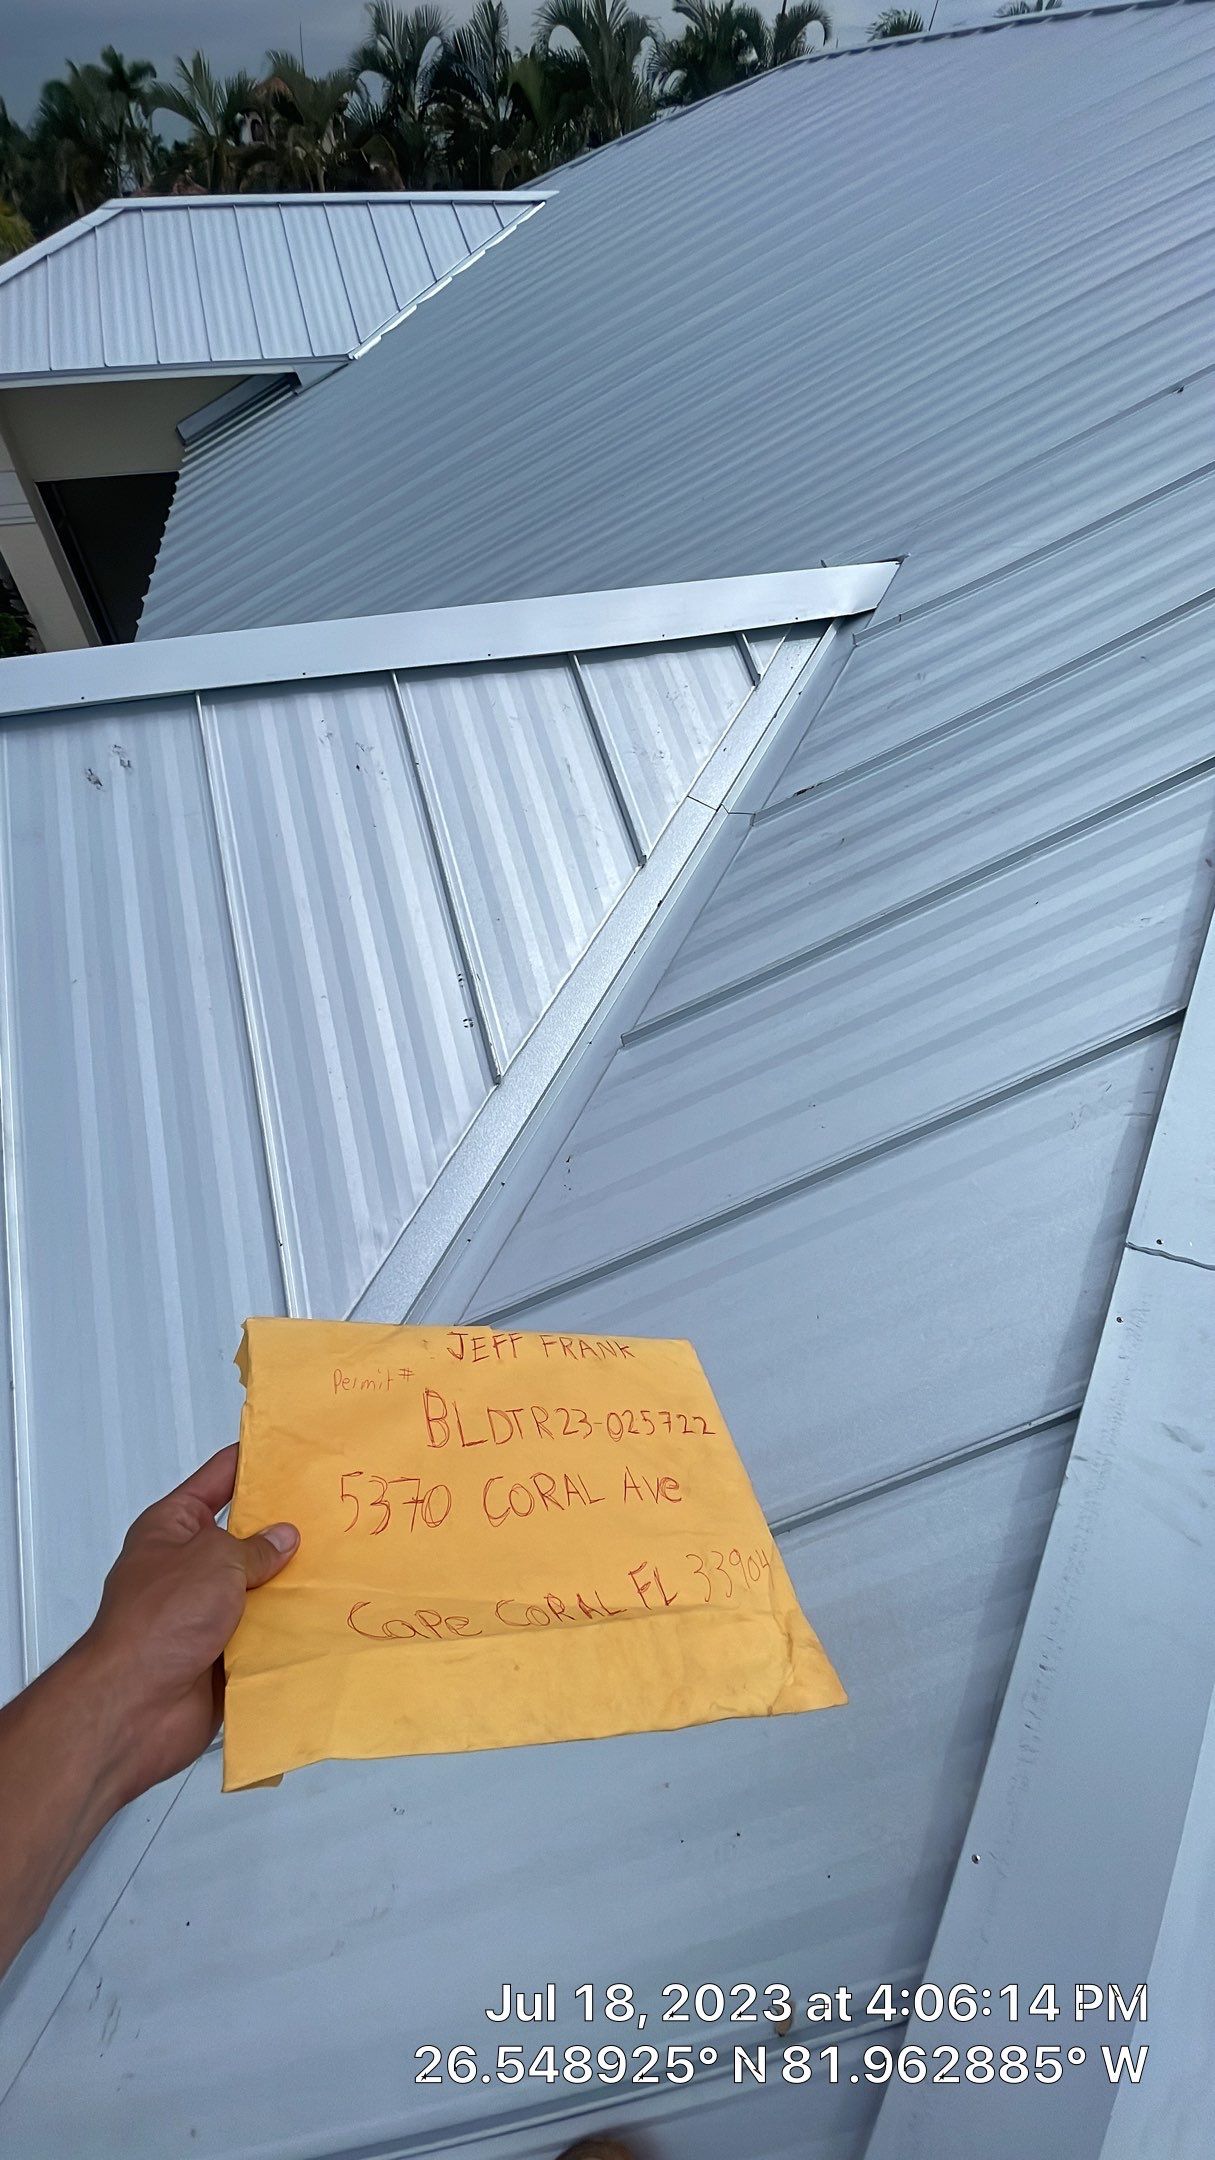 JEFF FRANK
Permit #
BLDTR23-025722
5370 CORAL Ave
Cape CORAL FL 33904
Jul 18, 2023 at 4:06:14 PM
26.548925° N 81.962885° W